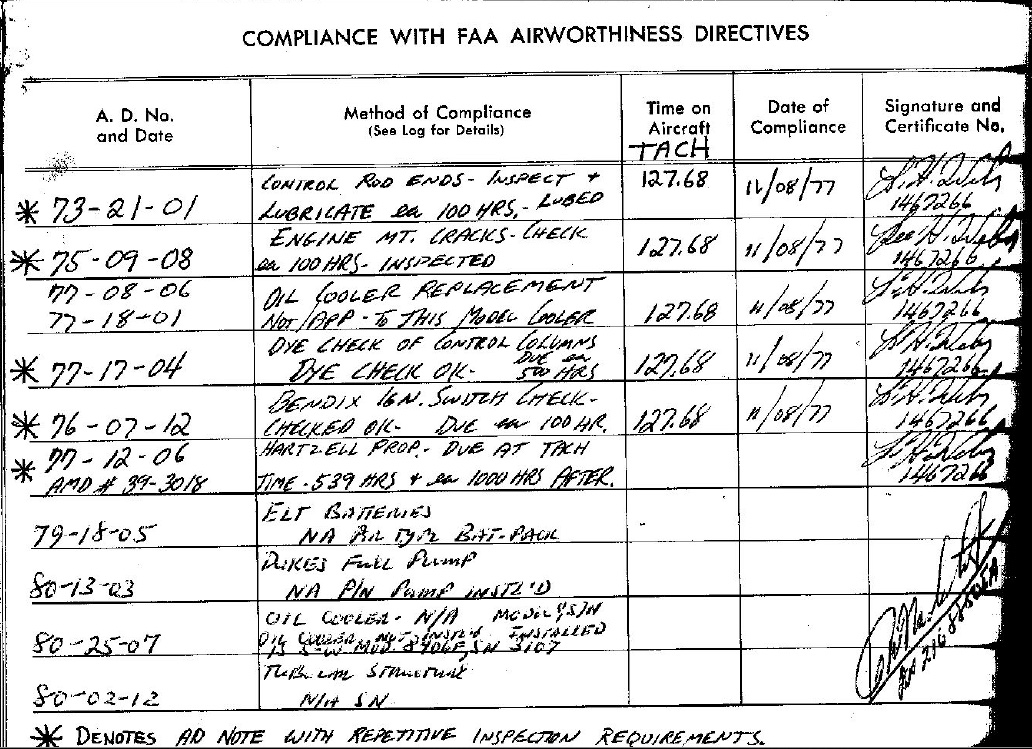 COMPLIANCE WITH FAA AIRWORTHINESS DIRECTIVES
A. D. No. and Date
Method of Compliance
(See Log for Details)
Time on Aircraft
TACH
Date of Compliance
Signature and Certificate No.
* 73-21-01
CONTROL ROD ENDS- INSPECT +
LUBRICATE ea 100 HRS,- LUBED
127.68
11/08/77
1467266
* 75-09-08
ENGINE MT. CRACKS- CHECK
ea 100 HRS- INSPECTED
127.68
11/08/77
1467266
77-08-06
77-18-01
OIL COOLER REPLACEMENT
NOT/APP- TO THIS MODEL COOLER
127.68
11/08/77
1467266
* 77-17-04
DYE CHECK OF CONTROL COLUMNS
DYE CHECK OK- DUE ea
500 HRS
127.68
11/08/77
1467266
* 76-07-12
BENDIX IGN. SWITCH CHECK-
CHECKED OK- DUE ea 100 HR.
127.68
11/08/77
1467266
* 77-12-06
AMD # 39-3018
HARTZELL PROP.- DUE AT TACH
TIME-539 HRS + ea 1000 HRS AFTER.
1467266
79-18-05
ELT BATTERIES
NA BAT-PACK
80-13-03
DUKES FUEL PUMP
NA P/N PUMP INSTL'D
80-25-07
OIL COOLER- N/A MODEL & S/N
OIL COOLER NOT INSTL'D. INSTALLED
IS S-W MOD 8406F, SN 3107
80-02-12
TUBULAR STRUCTURE
N/A SN
* DENOTES AD NOTE WITH REPETITIVE INSPECTION REQUIREMENTS.